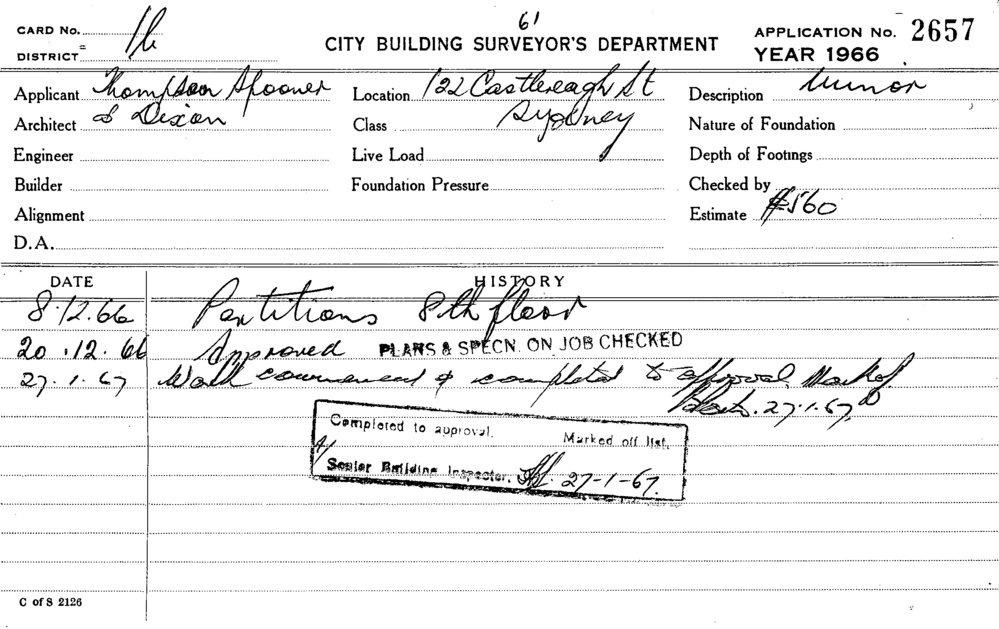 61
CARD No. 16
DISTRICT
CITY BUILDING SURVEYOR'S DEPARTMENT
APPLICATION No. 2657
YEAR 1966
Applicant Thompson Spooner
Location 122 Castlereagh St
Description Minor
Architect & Dixon
Class Sydney
Nature of Foundation
Engineer
Live Load
Depth of Footings
Builder
Foundation Pressure
Checked by
Alignment
Estimate $560
D.A.
DATE HISTORY
8.12.66 Partitions 8th floor
20.12.66 Approved PLANS & SPECN. ON JOB CHECKED
27.1.67 Work commenced & completed to approval. Mark off
27.1.67
Completed to approval. Marked off list.
A/
Senior Building Inspector. 27-1-67.
C of S 2126